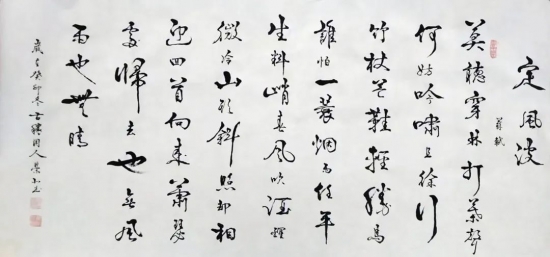 定風波
蘇軾
莫聽穿林打葉聲
何妨吟嘯且徐行
竹杖芒鞋輕勝馬
誰怕一蓑烟雨任平
生料峭春風吹酒醒
微冷山頭斜照却相
迎回首向來蕭瑟
處歸去也無風
雨也無晴
歲在癸卯冬